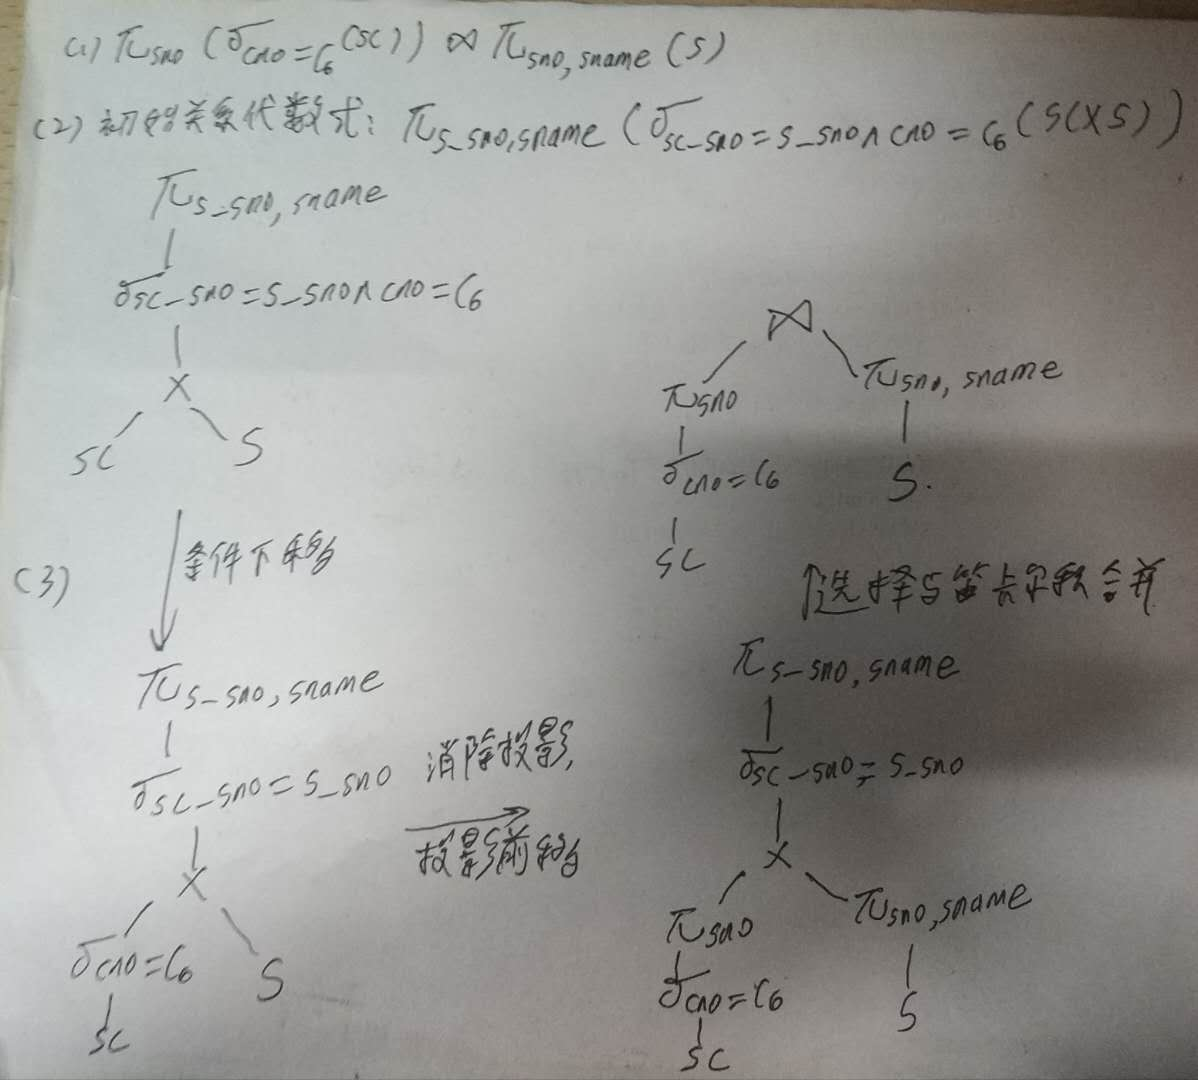 (1) π sno (σ cno=C6 (SC)) ⋈ π sno, sname (S)
(2) 初始关系代数式: π s_sno, sname (σ sc_sno = s_sno ∧ cno = C6 (SC X S))
π s_sno, sname
σ sc_sno = s_sno ∧ cno = C6
X
SC S
(3) 条件下移
π s_sno, sname
σ sc_sno = s_sno
X
σ cno = C6 S
SC
消除投影,
投影前移
π s_sno, sname
σ sc_sno = s_sno
X
π sno π sno, sname
σ cno = C6 S
SC
选择与笛卡尔积合并
⋈
π sno π sno, sname
σ cno = C6 S.
SC